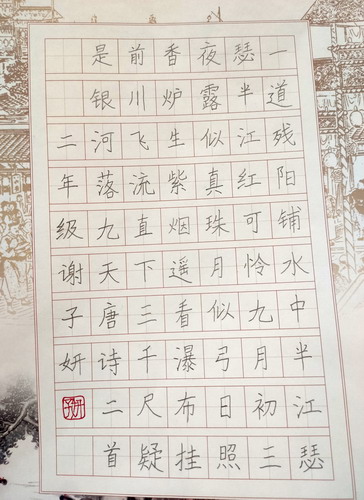 一道残阳铺水中半江瑟
瑟半江红可怜九月初三
夜露似真珠月似弓日照
香炉生紫烟遥看瀑布挂
前川飞流直下三千尺疑
是银河落九天唐诗二首
二年级谢子妍